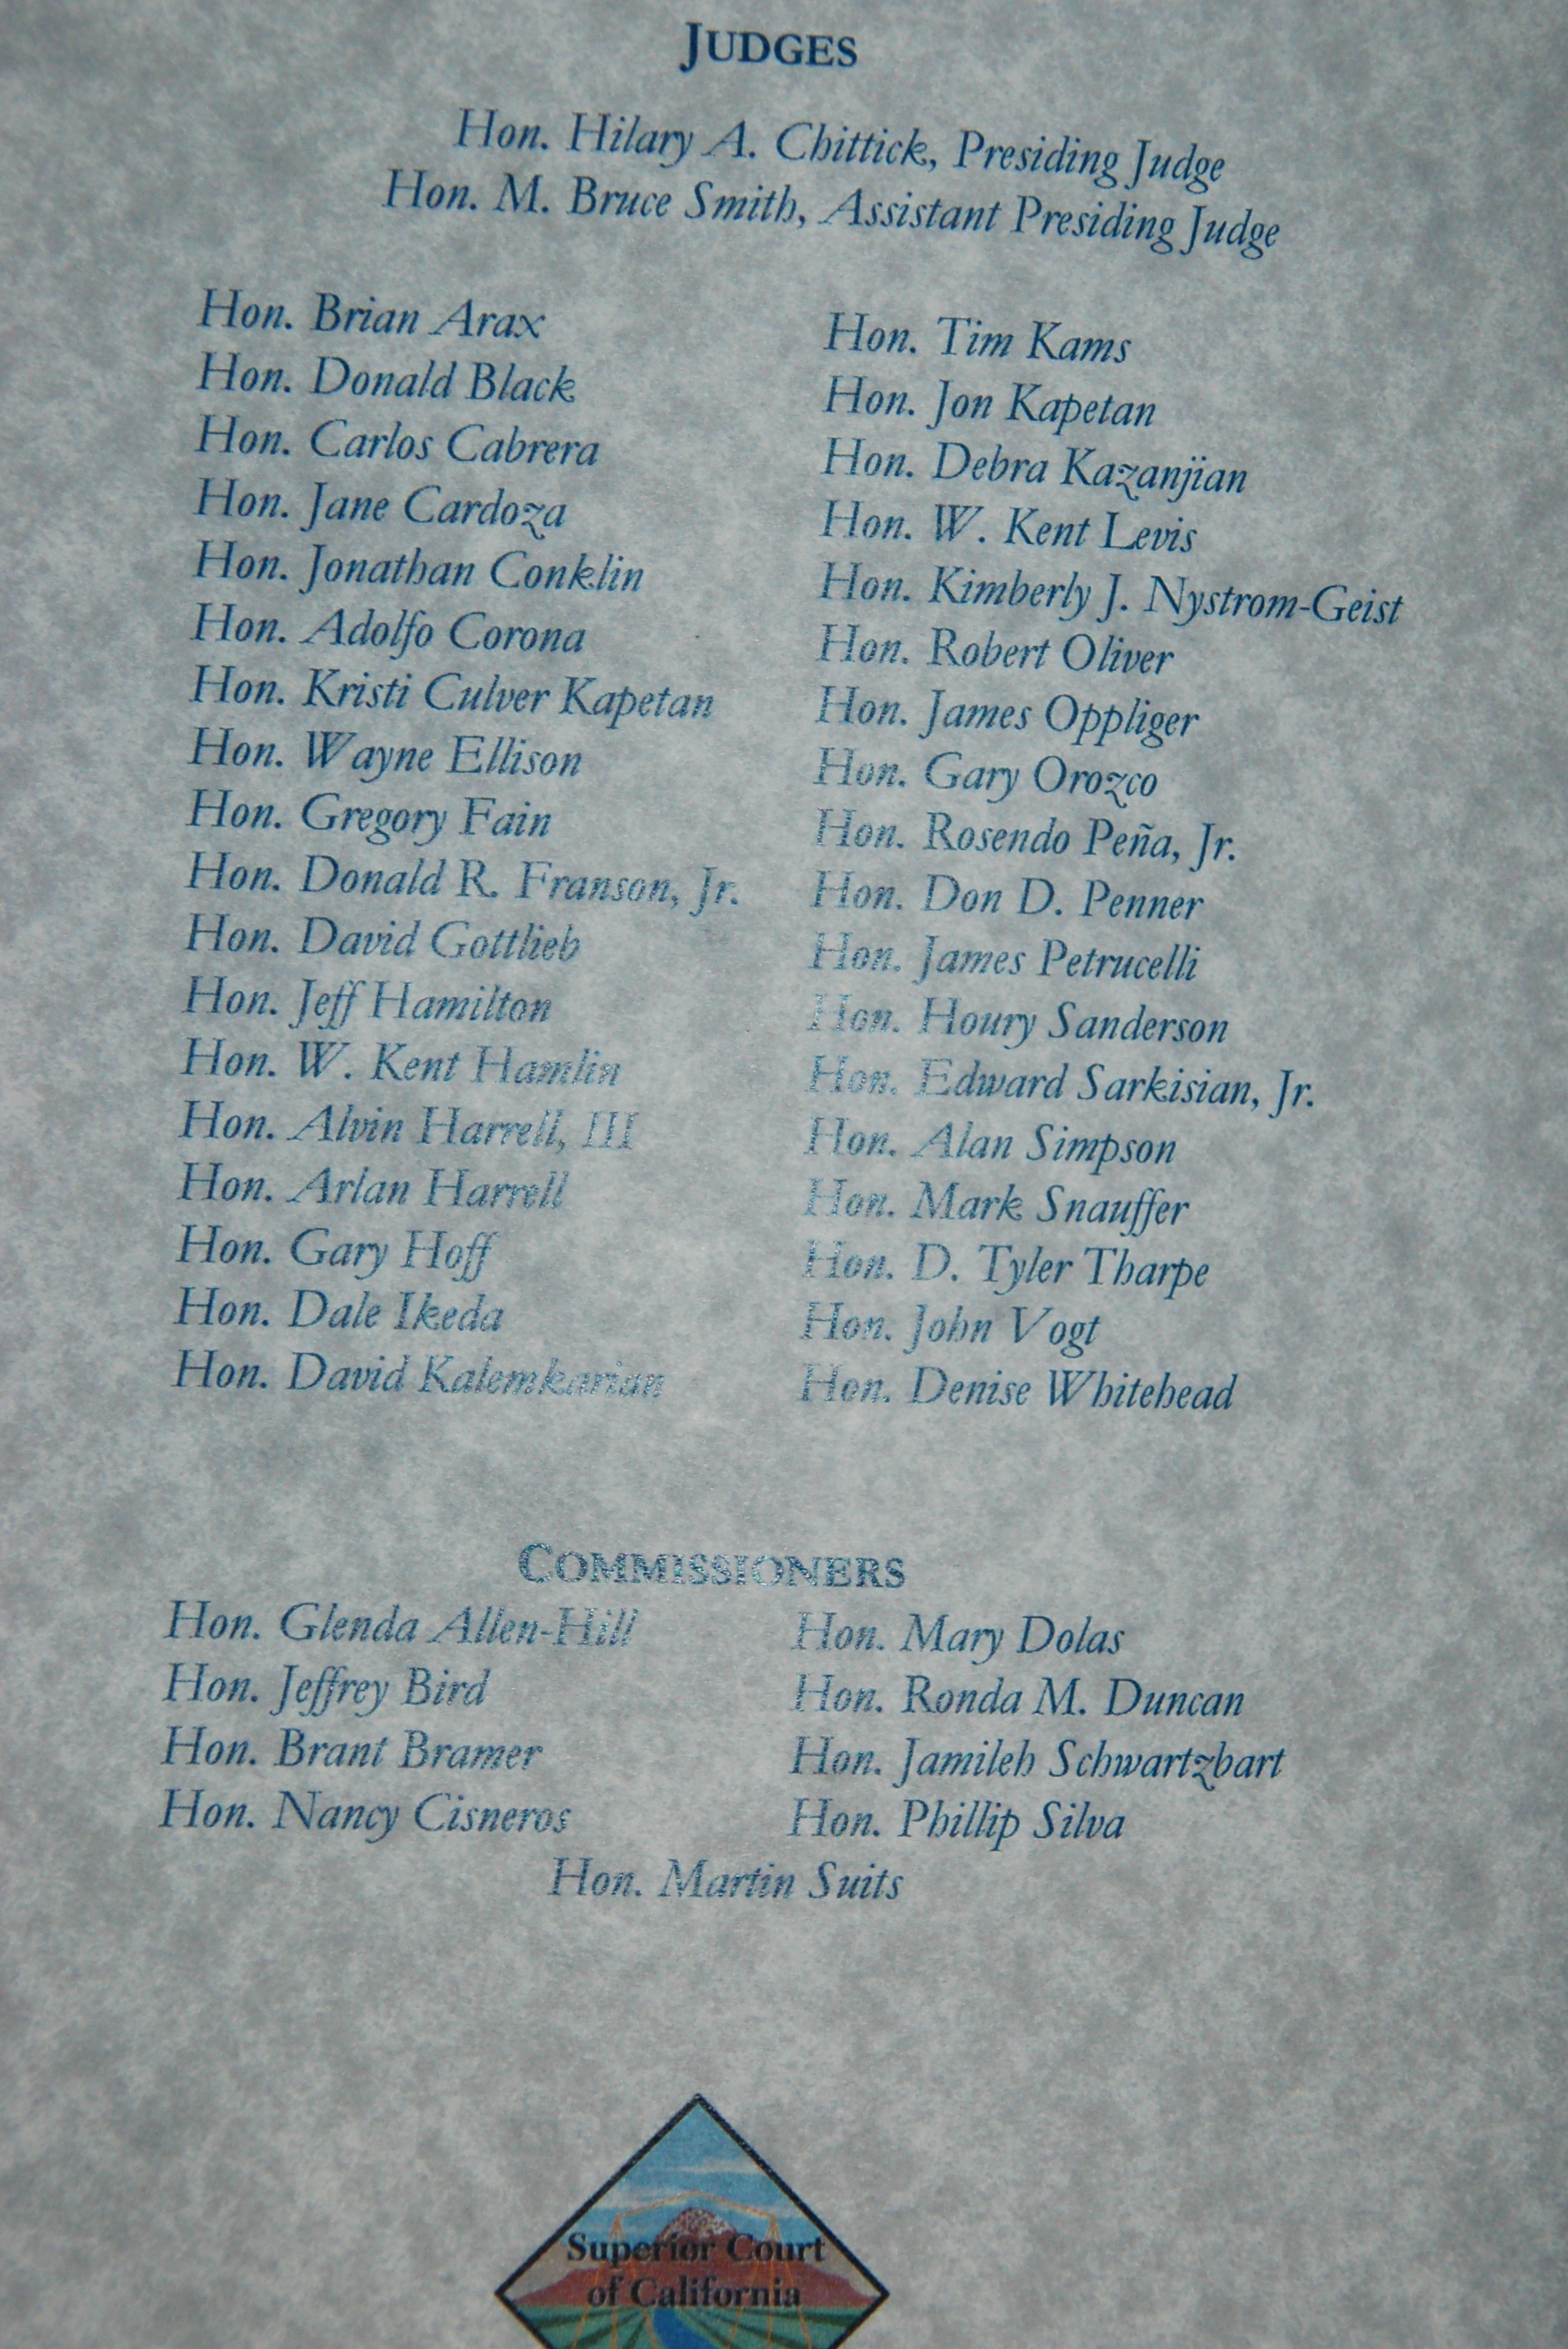 JUDGES
Hon. Hilary A. Chittick, Presiding Judge
Hon. M. Bruce Smith, Assistant Presiding Judge
Hon. Brian Arax
Hon. Donald Black
Hon. Carlos Cabrera
Hon. Jane Cardoza
Hon. Jonathan Conklin
Hon. Adolfo Corona
Hon. Kristi Culver Kapetan
Hon. Wayne Ellison
Hon. Gregory Fain
Hon. Donald R. Franson, Jr.
Hon. David Gottlieb
Hon. Jeff Hamilton
Hon. W. Kent Hamlin
Hon. Alvin Harrell, III
Hon. Arlan Harrell
Hon. Gary Hoff
Hon. Dale Ikeda
Hon. David Kalemkarian
Hon. Tim Kams
Hon. Jon Kapetan
Hon. Debra Kazanjian
Hon. W. Kent Levis
Hon. Kimberly J. Nystrom-Geist
Hon. Robert Oliver
Hon. James Oppliger
Hon. Gary Orozco
Hon. Rosendo Peña, Jr.
Hon. Don D. Penner
Hon. James Petrucelli
Hon. Houry Sanderson
Hon. Edward Sarkisian, Jr.
Hon. Alan Simpson
Hon. Mark Snauffer
Hon. D. Tyler Tharpe
Hon. John Vogt
Hon. Denise Whitehead
COMMISSIONERS
Hon. Glenda Allen-Hill
Hon. Jeffrey Bird
Hon. Brant Bramer
Hon. Nancy Cisneros
Hon. Mary Dolas
Hon. Ronda M. Duncan
Hon. Jamileh Schwartzbart
Hon. Phillip Silva
Hon. Martin Suits
Superior Court
of California